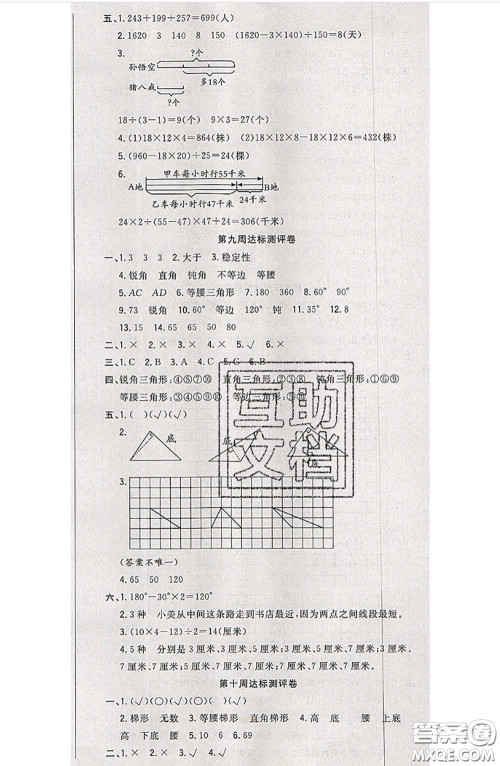 五、1. 243+199+257=699(人)
2. 1620 3 140 8 150 (1620-3×140)÷150=8(天)
3.
?个
孙悟空
多18个
猪八戒
?个
18÷(3-1)=9(个) 9×3=27(个)
4. (1)18×12×4=864(株) (2)18×12×8-18×12×6=432(株)
5. (960-18×20)÷25=24(棵)
6. 甲车每小时行55千米
A地 B地
乙车每小时行47千米 24千米
24×2÷(55-47)×47+24=306(千米)
第九周达标测评卷
一、1. 3 3 3 2. 大于 3. 稳定性
4. 锐角 直角 钝角 不等边 等腰
5. AC AD 6. 等腰三角形 7. 180 360 8. 60°
9. 73 锐角 10. 60° 等边 120° 钝 11. 35° 12. 8
13. 15 14. 65 15. 50 80 65 65
二、1. × 2. × 3. × 4. × 5. √ 6. ×
三、1. C 2. B 3. A 4. C 5. C 6. B
四、锐角三角形:④⑤⑦⑩ 直角三角形:②③⑧ 钝角三角形:①⑥⑨
等腰三角形:③④⑤⑥⑩
五、1. ( )(√)(√)
2. 底 底 底
3.
(答案不唯一)
4. 65 50 120
六、1. 180°-30°×2=120°
2. 3种 小美从中间这条路走到书店最近,因为两点之间线段最短。
3. (10×4-12)÷2=14(厘米)
4. 5种 分别是3厘米、3厘米、5厘米;3厘米、5厘米、5厘米;3厘米、
7厘米、7厘米;5厘米、5厘米、7厘米;5厘米、7厘米、7厘米。
第十周达标测评卷
一、1. (√)(√)( )(√)(√)(√)
2. 梯形 无数 3. 等腰梯形 直角梯形 4. 高 底 腰 上底
高 下底 腰 5. 10 6 6. 69
二、1. × 2. × 3. √ 4. √
互助文档
答案圈
MXQE.COM